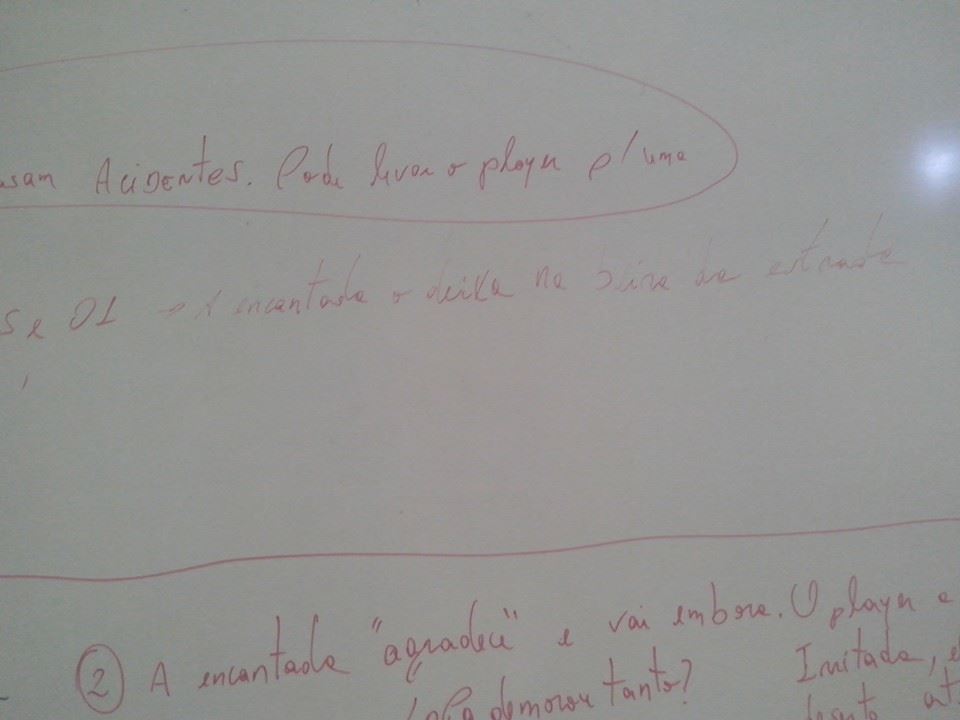 usam Acidentes. Pode levar o player p/ uma
Se 01 → A encantada o deixa na beira da estrada
2 A encantada "agradece" e vai embora. O player e
demorou tanto? Irritada, e